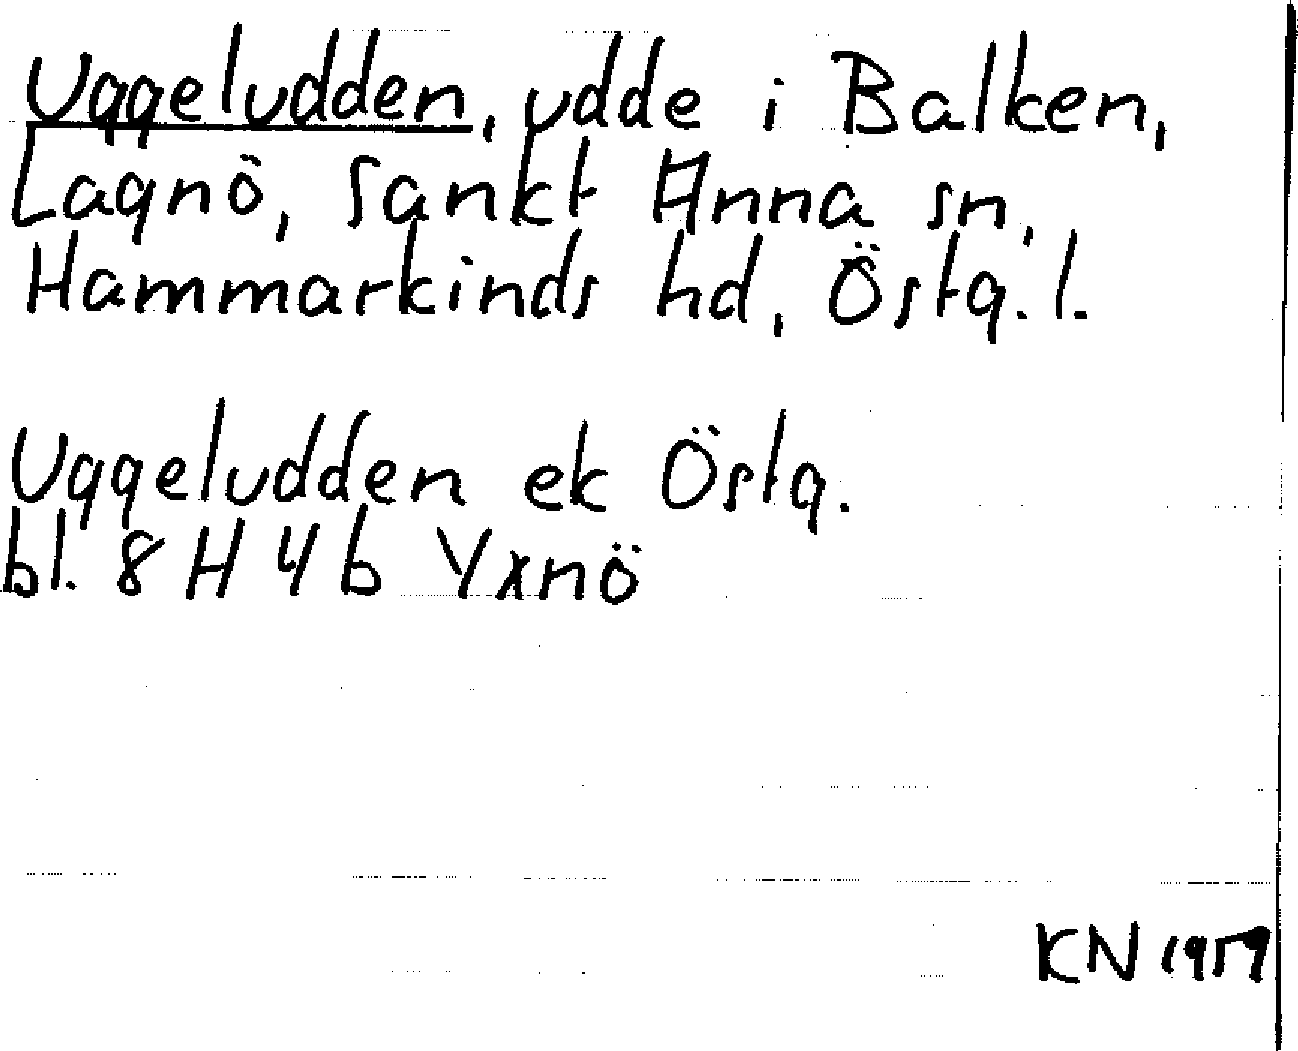 Uggeludden, udde i Balken,
Lagnö, Sankt Anna sn,
Hammarkinds hd, Östg. l.
Uggeludden ek Östg.
bl. 8 H 4 b Yxnö
KN